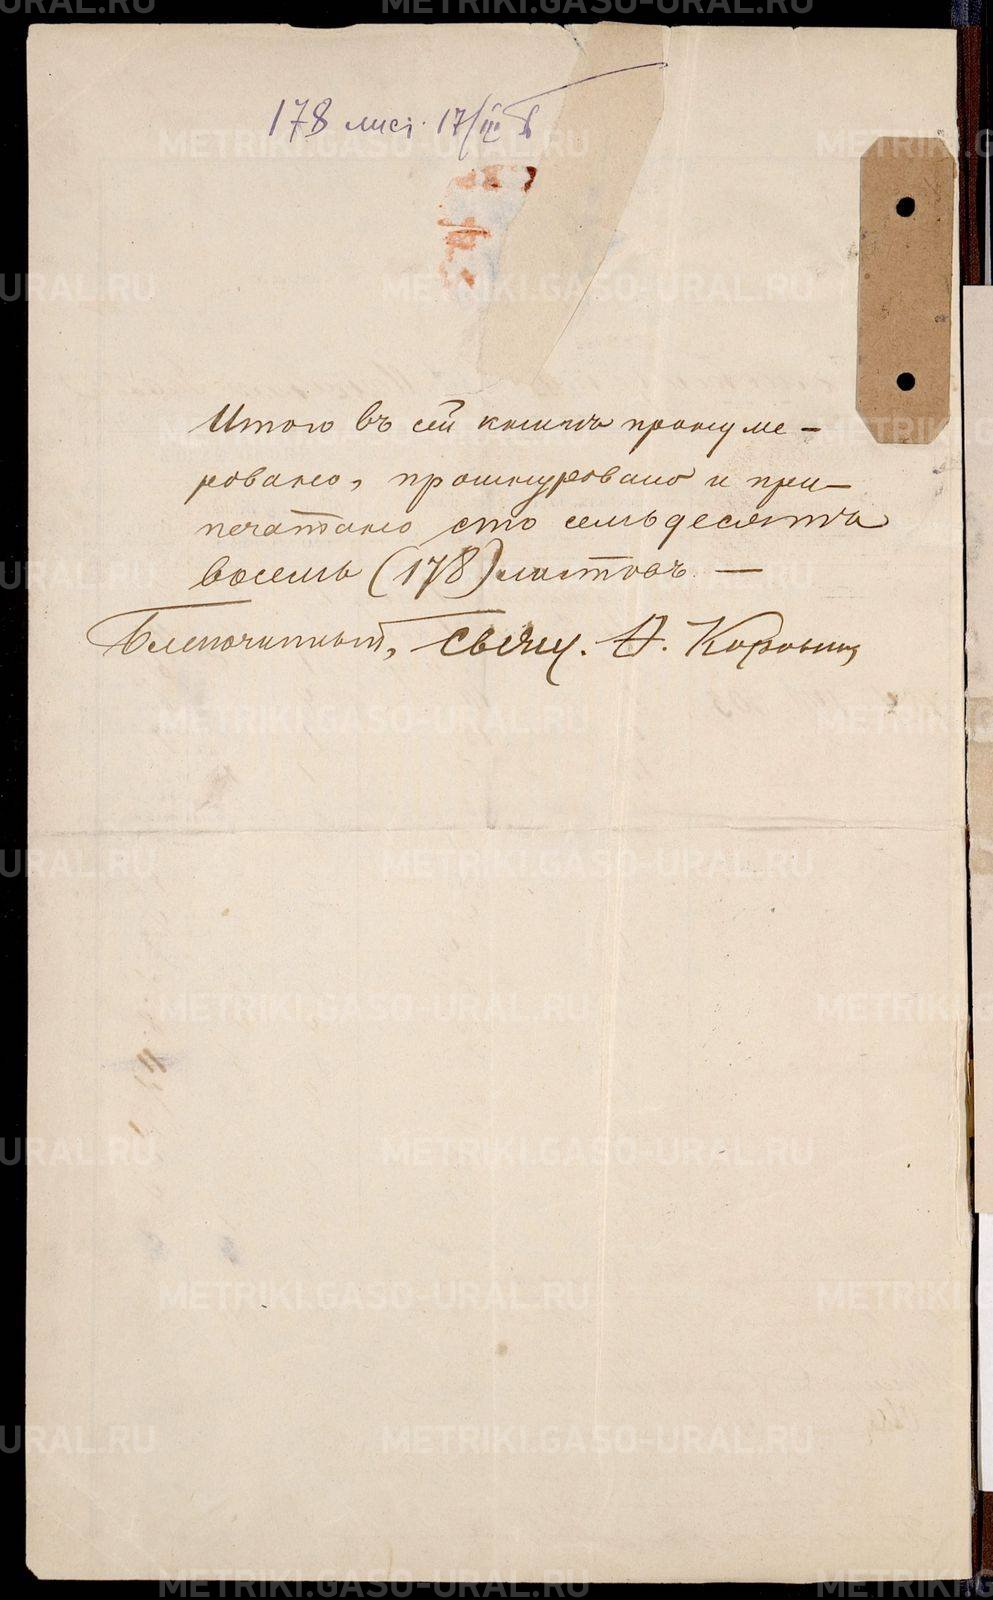 178 лист. 17/III
Итого въ сей книгѣ пронуме-
ровано, прошнуровано и при-
печатано сто семьдесятъ
восемь (178) листовъ. —
Благочинный, свящ. А. Коровин
METRIKI.GASO-URAL.RU